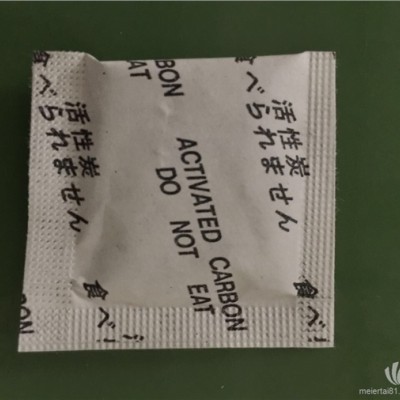 食べ
活性炭
られません
BON
EAT
CARBON
食べ
活性炭
られません
ACTIVATED CARBON
DO NOT EAT
食べ
食べ
BON
meiertai81.